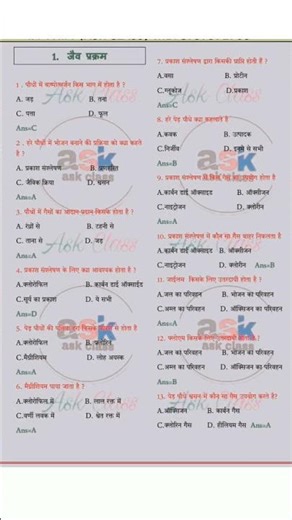 1. जैव प्रक्रम
1. पौधों में वाष्पोत्सर्जन किस भाग में होता है ?
A. जड़ B. तना
C. पत्ता D. फूल
Ans=C
2. हरे पौधों में भोजन बनाने की प्रक्रिया को क्या कहते है ?
A. प्रकाश संश्लेषण B.
C. जैविक क्रिया D. श्वसन
Ans=A
3. पौधों में गैसों का आदान-प्रदान किसके होता है ?
A. रंध्रों से B. टहनी से
C. तना से D. जड़
Ans=A
4. प्रकाश संश्लेषण के लिए क्या आवश्यक होता है ?
A. क्लोरोफिल B. कार्बन डाई ऑक्साईड
C. सूर्य का प्रकाश D. ये सभी
Ans=D
5. पेड़ पौधों की में होता है
A. क्लोरोफिल B. फ्लोरिन
C. मैग्नीशियम D. लोह अयस्क
Ans=A
6. मैग्नीशियम पाया जाता है ?
A. क्लोरोफिल में B. लाल रक्त में
C. वर्णी लवक में D. श्वेत रक्त में
Ans=A
7. प्रकाश संश्लेषण द्वारा किसकी प्राप्ति होती हैं ?
A. वसा B. प्रोटीन
C. ग्लूकोज D. प्रकाश
Ans=C
8. हरे पेड़ पौधे क्या कहलाते है
A. कवक B. उत्पादक
C. निर्जीव D. इनमे से सभी
Ans=B
9. प्रकाश संश्लेषण में किस गैस का उपयोग होता है
A. कार्बन डाई ऑक्साइड B. ऑक्सीजन
C. नाइट्रोजन D. क्लोरीन
Ans=A
10. प्रकाश संश्लेषण में कौन सा गैस बाहर निकलता है
A. कार्बन डाई ऑक्साइड B. ऑक्सीजन
C. नाइट्रोजन D. क्लोरीन Ans=B
11. जाईलम किसके लिए उत्तरदायी होता है ?
A. जल का परिवहन B. भोजन का परिवहन
C. अम्ल का परिवहन D. ऑक्सीजन का परिवहन
Ans=A
12. फ्लोएम किसके लिए उत्तरदायी होता है ?
A. जल का परिवहन B. भोजन का परिवहन
C. अम्ल का परिवहन D. ऑक्सीजन का परिवहन
Ans=B
13. पेड़ पौधे श्वसन में कौन सा गैस उपयोग करते है?
A. ऑक्सिजन B. कार्बन गैस
C. क्लोरिन गैस D. हीलियम गैस Ans=A
ask
ask class
ask
ask class
Ask Class